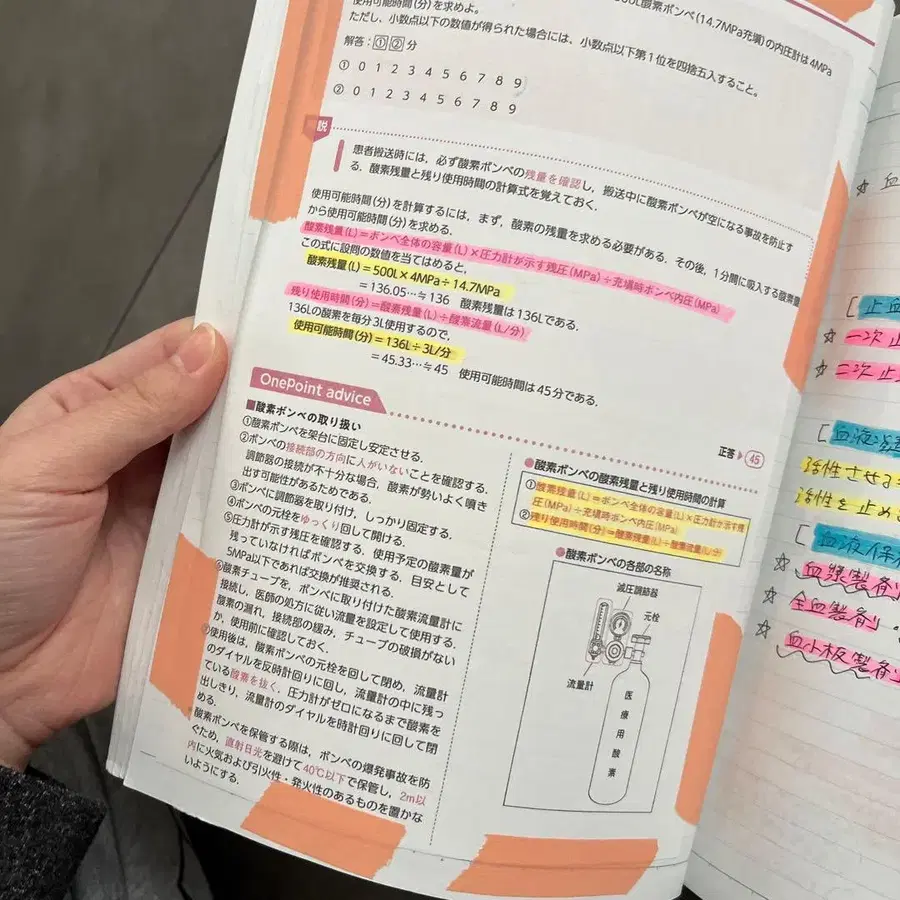 500L酸素ボンベ(14.7MPa充塡)の内圧計は4MPa
使用可能時間(分)を求めよ。
ただし、小数点以下の数値が得られた場合には、小数点以下第1位を四捨五入すること。
解答:①②分
① 0 1 2 3 4 5 6 7 8 9
② 0 1 2 3 4 5 6 7 8 9
説
患者搬送時には、必ず酸素ボンベの残量を確認し、搬送中に酸素ボンベが空になる事故を防止す
る。酸素残量と残り使用時間の計算式を覚えておく。
使用可能時間(分)を計算するには、まず、酸素の残量を求める必要がある。その後、1分間に吸入する酸素量
から使用可能時間(分)を求める。
酸素残量(L)=ボンベ全体の容量(L)×圧力計が示す残圧(MPa)÷充塡時ボンベ内圧(MPa)
この式に設問の数値を当てはめると、
酸素残量(L)=500L×4MPa÷14.7MPa
=136.05…≒136 酸素残量は136Lである。
残り使用時間(分)=酸素残量(L)÷酸素流量(L/分)
136Lの酸素を毎分3L使用するので、
使用可能時間(分)=136L÷3L/分
=45.33…≒45 使用可能時間は45分である。
正答 45
OnePoint advice
■酸素ボンベの取り扱い
①酸素ボンベを架台に固定し安定させる。
②ボンベの接続部の方向に人がいないことを確認する。
調節器の接続が不十分な場合、酸素が勢いよく噴き
出す可能性があるためである。
③ボンベに調節器を取り付け、しっかり固定する。
④ボンベの元栓をゆっくり回して開ける。
⑤圧力計が示す残圧を確認する。使用予定の酸素量が
残っていなければボンベを交換する。目安として
5MPa以下であれば交換が推奨される。
⑥酸素チューブを、ボンベに取り付けた酸素流量計に
接続し、医師の処方に従い流量を設定して使用する。
酸素の漏れ、接続部の緩み、チューブの破損がない
か、使用前に確認しておく。
⑦使用後は、酸素ボンベの元栓を回して閉め、流量計
のダイヤルを反時計回りに回し、流量計の中に残っ
ている酸素を抜く。圧力計がゼロになるまで酸素を
出しきり、流量計のダイヤルを時計回りに回して閉
める。
酸素ボンベを保管する際は、ボンベの爆発事故を防
ぐため、直射日光を避けて40℃以下で保管し、2m以
内に火気および引火性・発火性のあるものを置かな
いようにする。
●酸素ボンベの酸素残量と残り使用時間の計算
①酸素残量(L)=ボンベ全体の容量(L)×圧力計が示す残
圧(MPa)÷充塡時ボンベ内圧(MPa)
②残り使用時間(分)=酸素残量(L)÷酸素流量(L/分)
●酸素ボンベの各部の名称
減圧調節器
元栓
流量計
医療用酸素
☆ 血
[止血
☆ 一次止
☆ 二次止
[血液凝
活性させる
活性を止め
[血液保
☆ 血漿製剤
☆ 全血製剤
☆ 血小板製